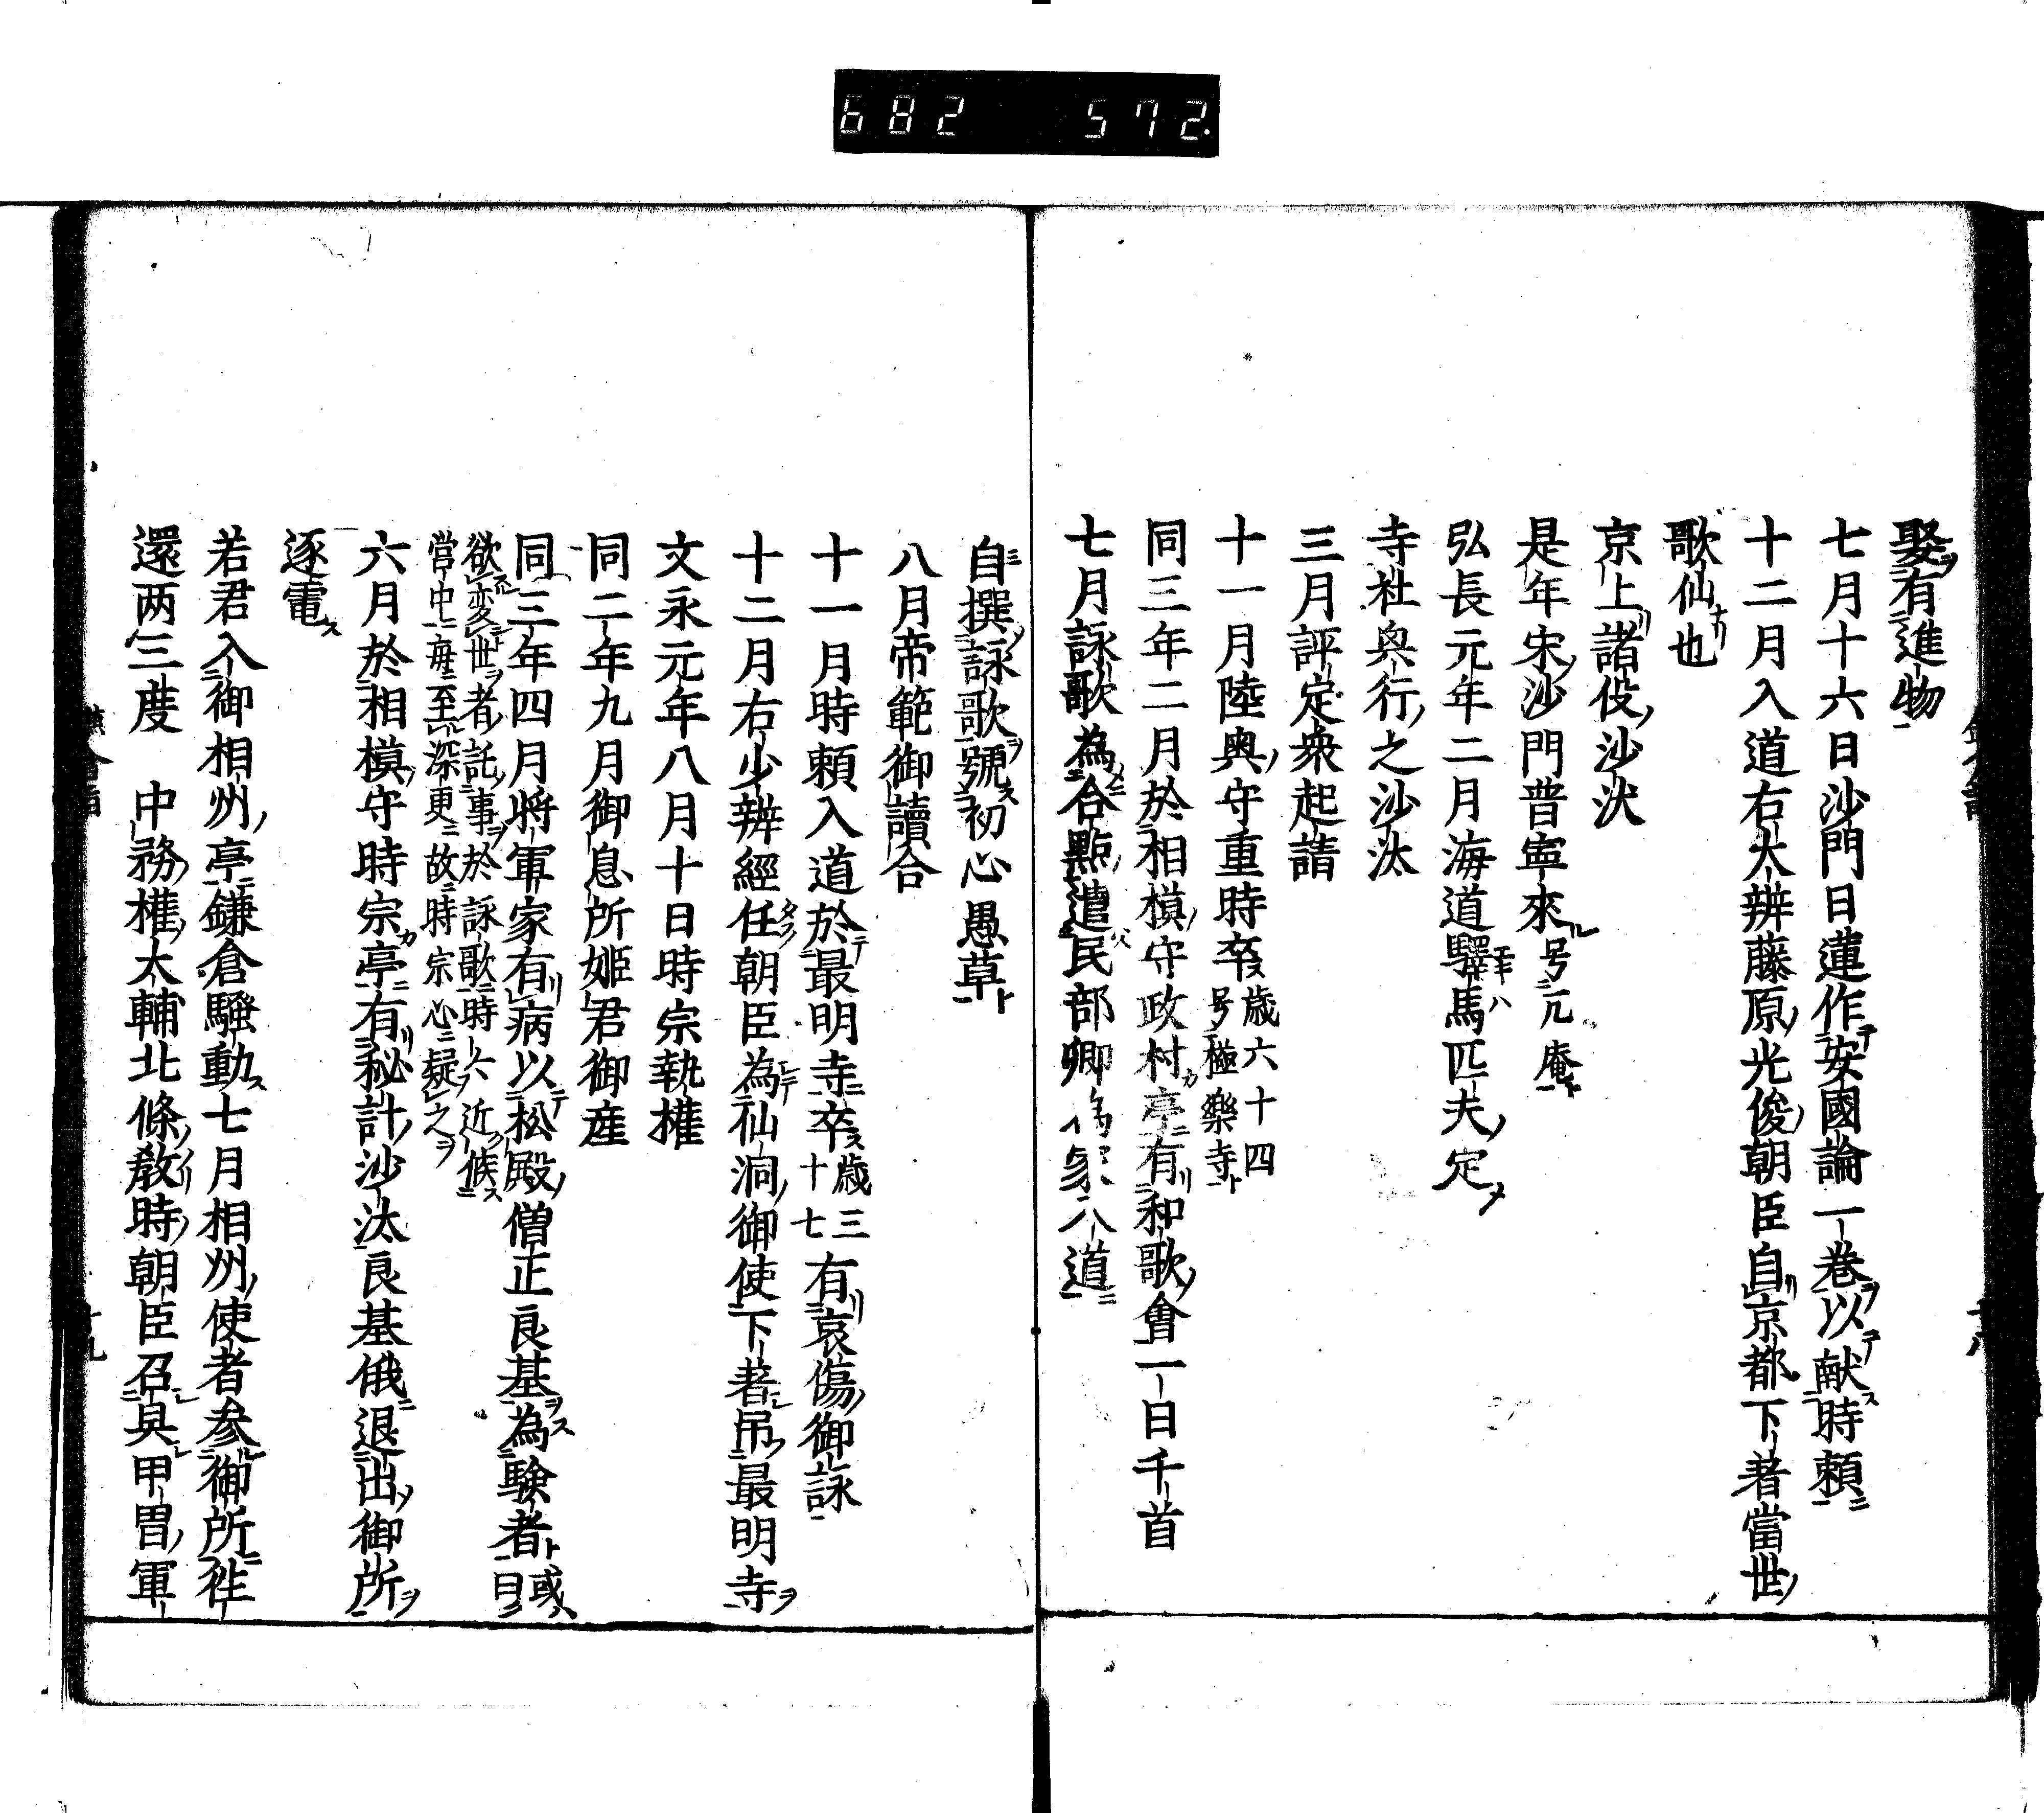 682 572.
娶有進物
七月十六日沙門日蓮作安國論一巻以献時頼
十二月入道右大辨藤原光俊朝臣自京都下着當世
歌仙也
京上諸役沙汰
是年宋沙門普寧來号元庵
弘長元年二月海道驛馬匹夫定
寺社與行之沙汰
三月評定衆起請
十一月陸奥守重時卒歳六十四
号極樂寺
同三年二月於相模守政村亭有和歌會一日千首
七月詠歌為合點遣民部卿為家入道
自撰詠歌號初心愚草
八月帝範御讀合
十一月時頼入道於最明寺卒歳三十七有哀傷御詠
十二月右少辨經任朝臣為仙洞御使下着吊最明寺
文永元年八月十日時宗執権
同二年九月御息所姫君御産
同三年四月将軍家有病以松殿僧正良基為験者或曰
欲変世者託事於詠歌時々近候
営中毎至深更故時宗心疑之
六月於相模守時宗亭有秘計沙汰良基俄退出御所
逐電
若君入御相州亭鎌倉騒動七月相州使者参御所往
還两三度 中務権太輔北條教時朝臣召具甲冑軍